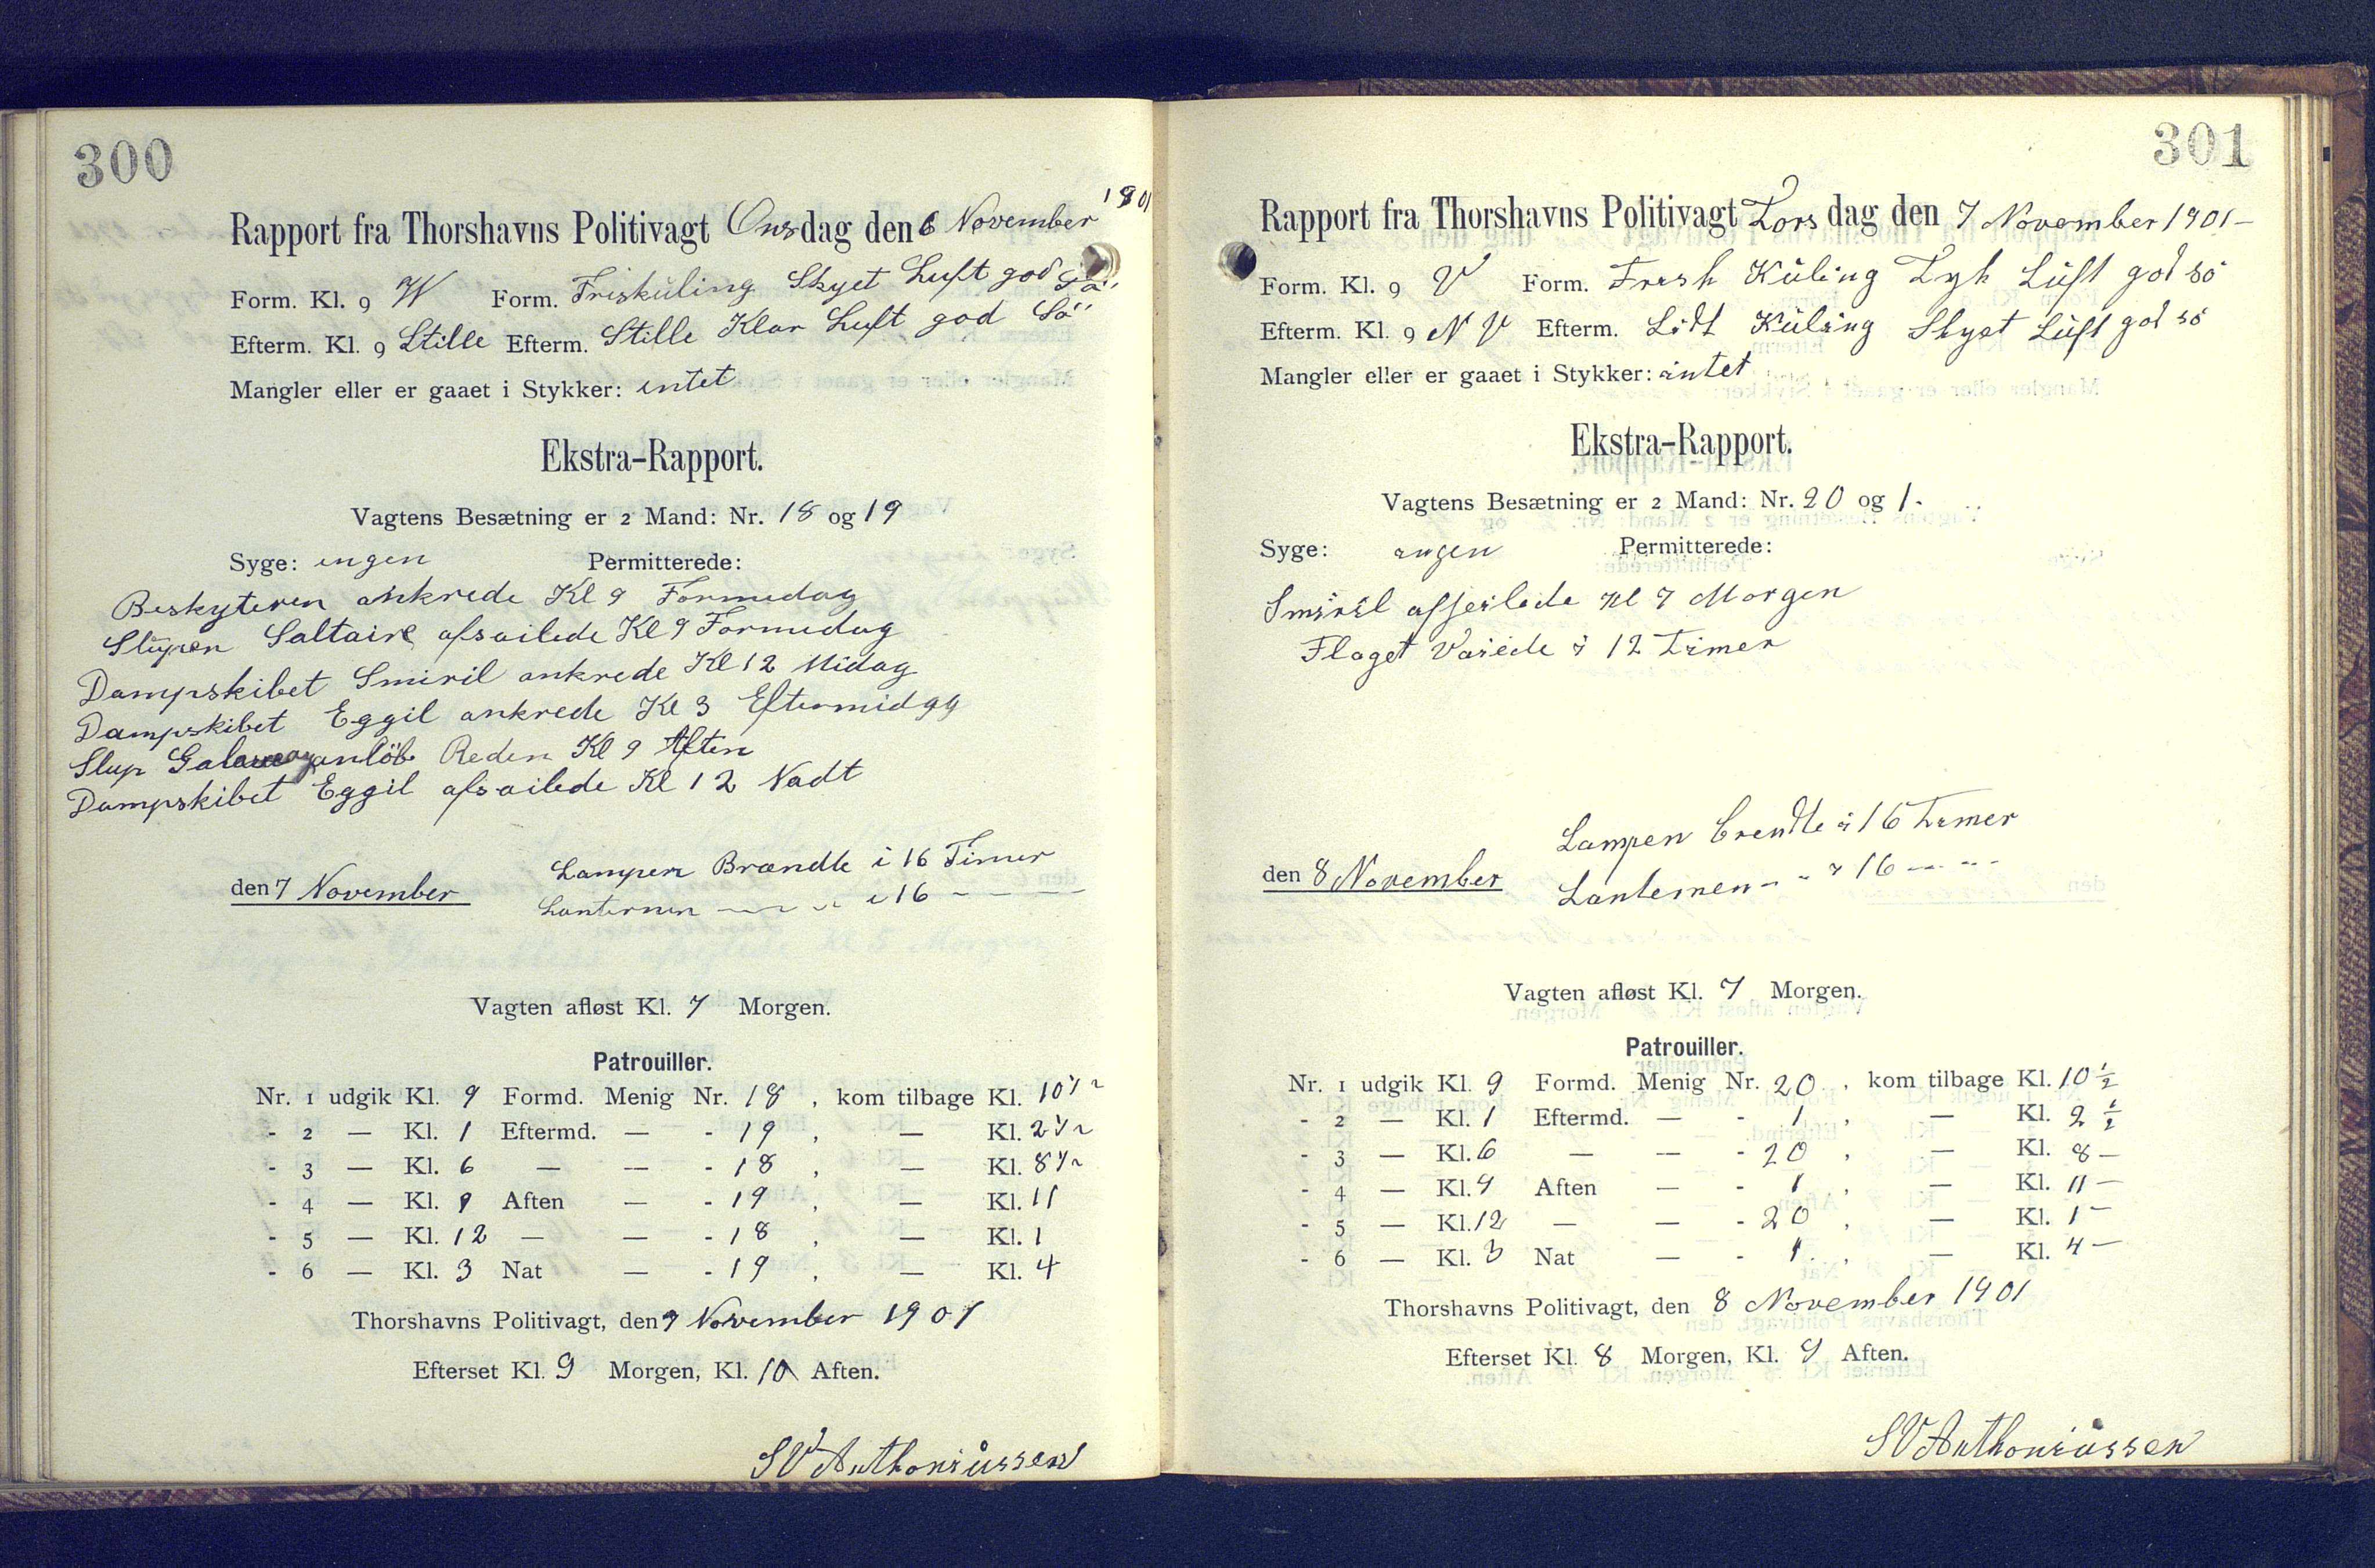 300
Rapport fra Thorshavns Politivagt Onsdag den 6 November 1901
Form. Kl. 9 W Form. Friskuling Skyet Luft god Sö
Efterm. Kl. 9 Stille Efterm. Stille Klar Luft god Sö
Mangler eller er gaaet i Stykker: intet
Ekstra-Rapport.
Vagtens Besætning er 2 Mand: Nr. 18 og 19
Syge: ingen Permitterede:
Beskyteren ankrede Kl 9 Formedag
Slupen Saltaire afsailede Kl 9 Formedag
Dampskibet Smiril ankrede Kl 12 Midag
Dampskibet Eggil ankrede Kl 3 Eftermidag
Slup anlöb Reden Kl 9 Aften
Dampskibet Eggil afsailede Kl 12 Nadt
den 7 November Lampen Brændte i 16 Timer
Lanternen — „ „ i 16 - — —
Vagten afløst Kl. 7 Morgen.
Patrouiller.
Nr. 1 udgik Kl. 9 Formd. Menig Nr. 18 , kom tilbage Kl. 10½
- 2 — Kl. 1 Eftermd. — - 19 , — Kl. 2½
- 3 — Kl. 6 — — - 18 , — Kl. 8½
- 4 — Kl. 9 Aften — - 19 , — Kl. 11
- 5 — Kl. 12 — — - 18 , — Kl. 1
- 6 — Kl. 3 Nat — - 19 , — Kl. 4
Thorshavns Politivagt, den 7 November 1901
Efterset Kl. 9 Morgen, Kl. 10 Aften.
SV Anthoniussen
301
Rapport fra Thorshavns Politivagt Torsdag den 7 November 1901 –
Form. Kl. 9 V Form. Fresk Küling Tyk Lüft god sö
Efterm. Kl. 9 N V Efterm. Lidt Küling Skyet Lüft god sö
Mangler eller er gaaet i Stykker: intet
Ekstra-Rapport.
Vagtens Besætning er 2 Mand: Nr. 20 og 1.
Syge: ingen Permitterede:
Smiril afseilede Kl 7 Morgen
Flaget Vaiede i 12 Timer
den 8 November Lampen brendte i 16 Timer
Lanternen - - i 16 - - -
Vagten afløst Kl. 7 Morgen.
Patrouiller.
Nr. 1 udgik Kl. 9 Formd. Menig Nr. 20 , kom tilbage Kl. 10½
- 2 — Kl. 1 Eftermd. — - 1 , — Kl. 2½
- 3 — Kl. 6 — — - 20 , — Kl. 8 –
- 4 — Kl. 9 Aften — - 1 , — Kl. 11 –
- 5 — Kl. 12 — — - 20 , — Kl. 1 –
- 6 — Kl. 3 Nat — - 1 , — Kl. 4 –
Thorshavns Politivagt, den 8 November 1901
Efterset Kl. 8 Morgen, Kl. 9 Aften.
SV Anthoniussen